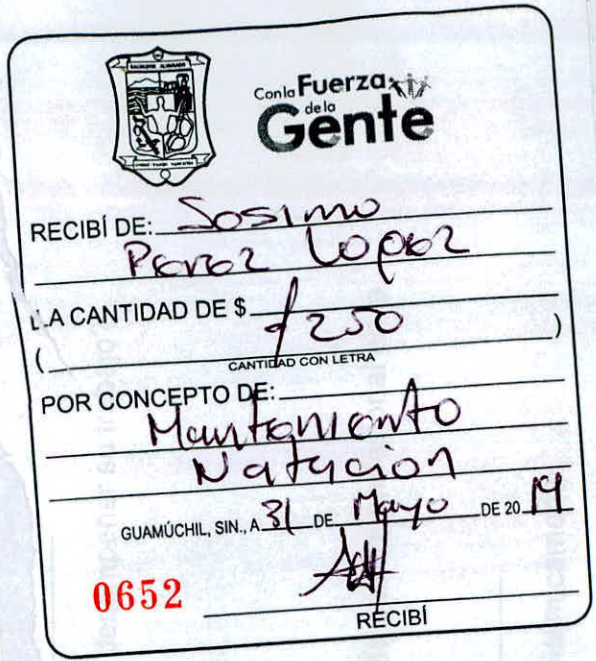 SALVADOR ALVARADO
Con la Fuerza
de la
Gente
RECIBÍ DE: Sosimo
Perez Lopez
LA CANTIDAD DE $ $250
( CANTIDAD CON LETRA )
POR CONCEPTO DE:
Mantenimiento
Natacion
GUAMÚCHIL, SIN., A 31 DE Mayo DE 2019
0652
RECIBÍ